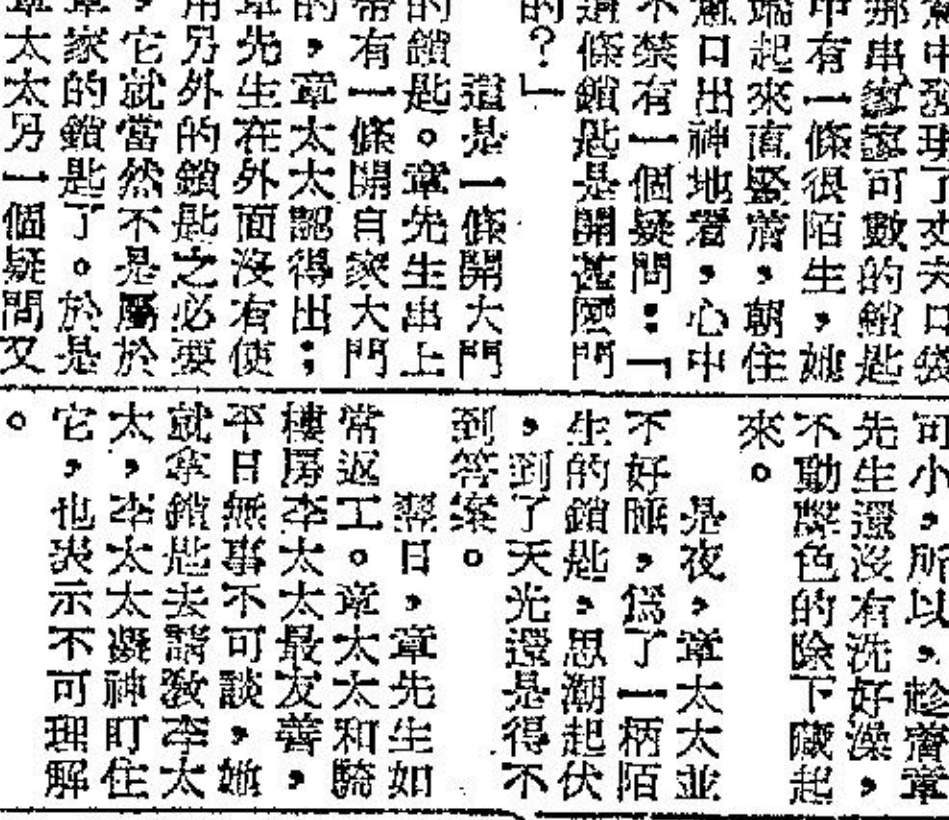 中發現了丈夫口袋
那串寥寥可數的鎖匙
中有一條很陌生,她
端起來直豎着,朝住
口出神地看,心中
不禁有一個疑問:「
這條鎖匙是開甚麼門
的?」
這是一條開大門
的鎖匙。章先生串上
有一條開自家大門
的,章太太認得出;
章先生在外面沒有使
用另外的鎖匙之必要
,它就當然不是屬於
章家的鎖匙了。於是
章太太另一個疑問又
可小,所以,趁着章
先生還沒有洗好澡,
不動聲色的除下藏起
來。
是夜,章太太並
不好睡,爲了一柄陌
生的鎖匙,思潮起伏
,到了天光還是得不
到答案。
翌日,章先生如
常返工。章太太和騎
樓房李太太最友善,
平日無事不可談,她
就拿鎖匙去請教李太
太,李太太凝神盯住
它,也表示不可理解
。